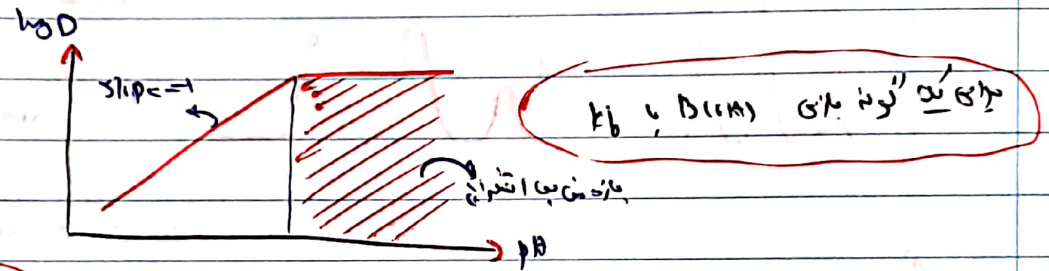 log D
slope = 1
برای یک گونه بازی B(تنها) با kb
بازه مناسب استخراج
pH